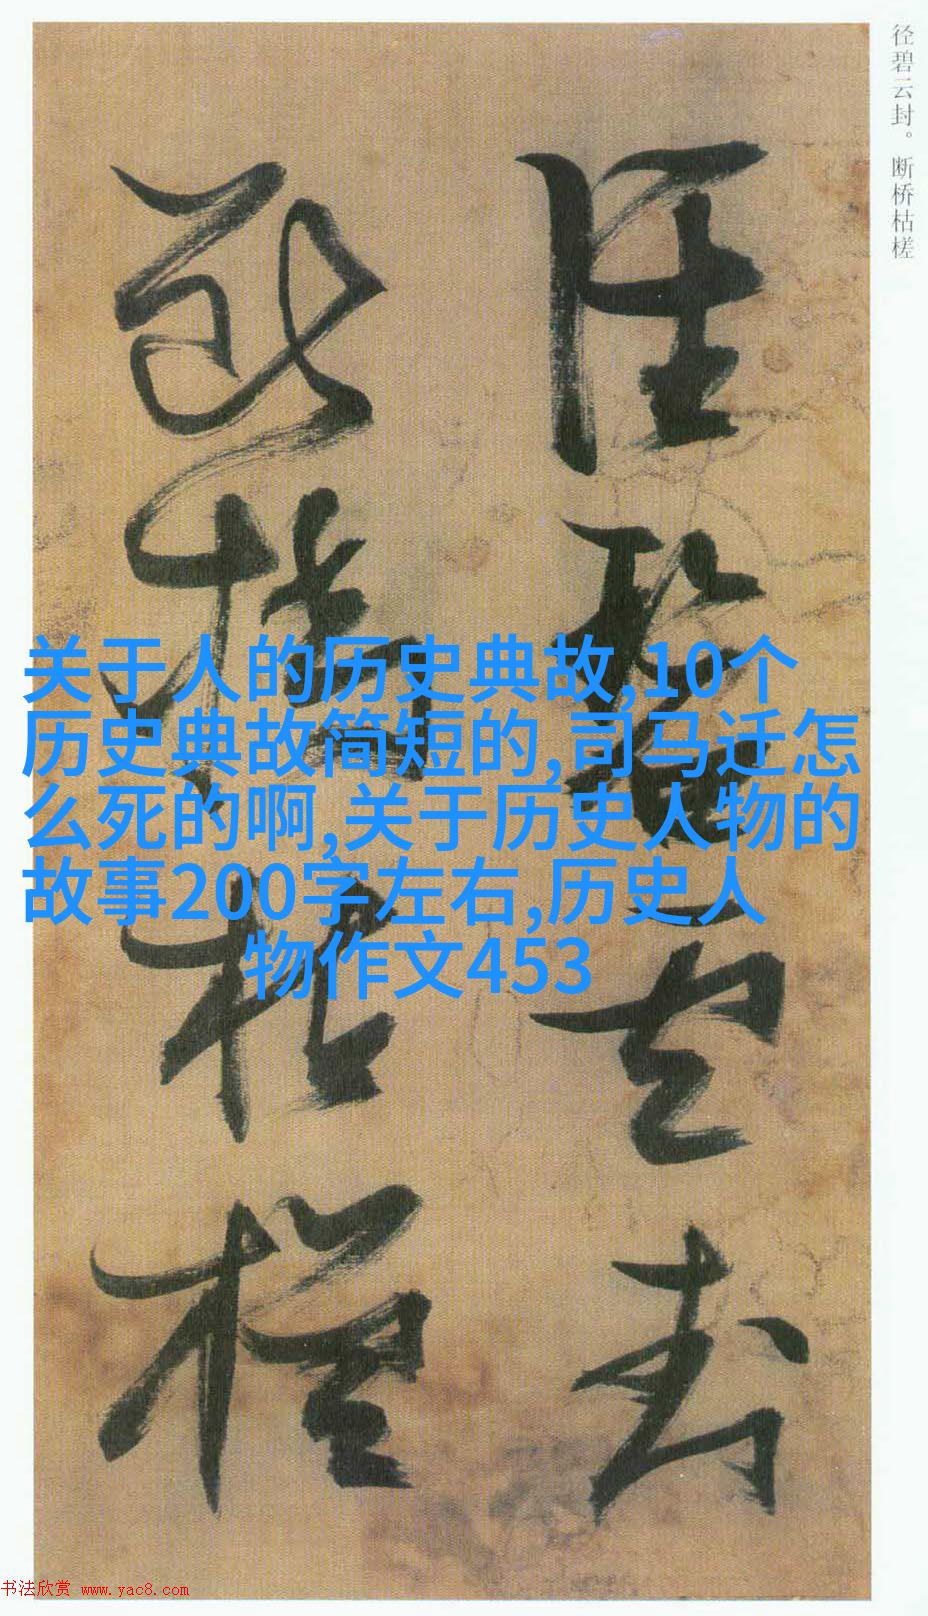 径碧云封。断桥枯槎
径碧云封
断桥枯槎
关于人的历史典故,10个
历史典故简短的,司马迁怎
么死的啊,关于历史人物的
故事200字左右,历史人
物作文453
书法欣赏 www.yac8.com